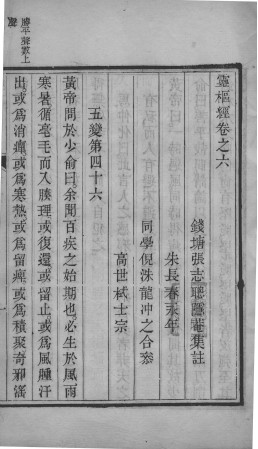 靈樞經卷之六
錢塘張志聰隱菴集註
朱長春永年
同學倪洙龍冲之合參
高世栻士宗
五變第四十六
黃帝問於少俞曰余聞百疾之始期也必生於風雨
寒暑循毫毛而入腠理或復還或留止或為風腫汗
出或為消癉或為寒熱或為留痺或為積聚奇邪淫
勝平聲數上
聲